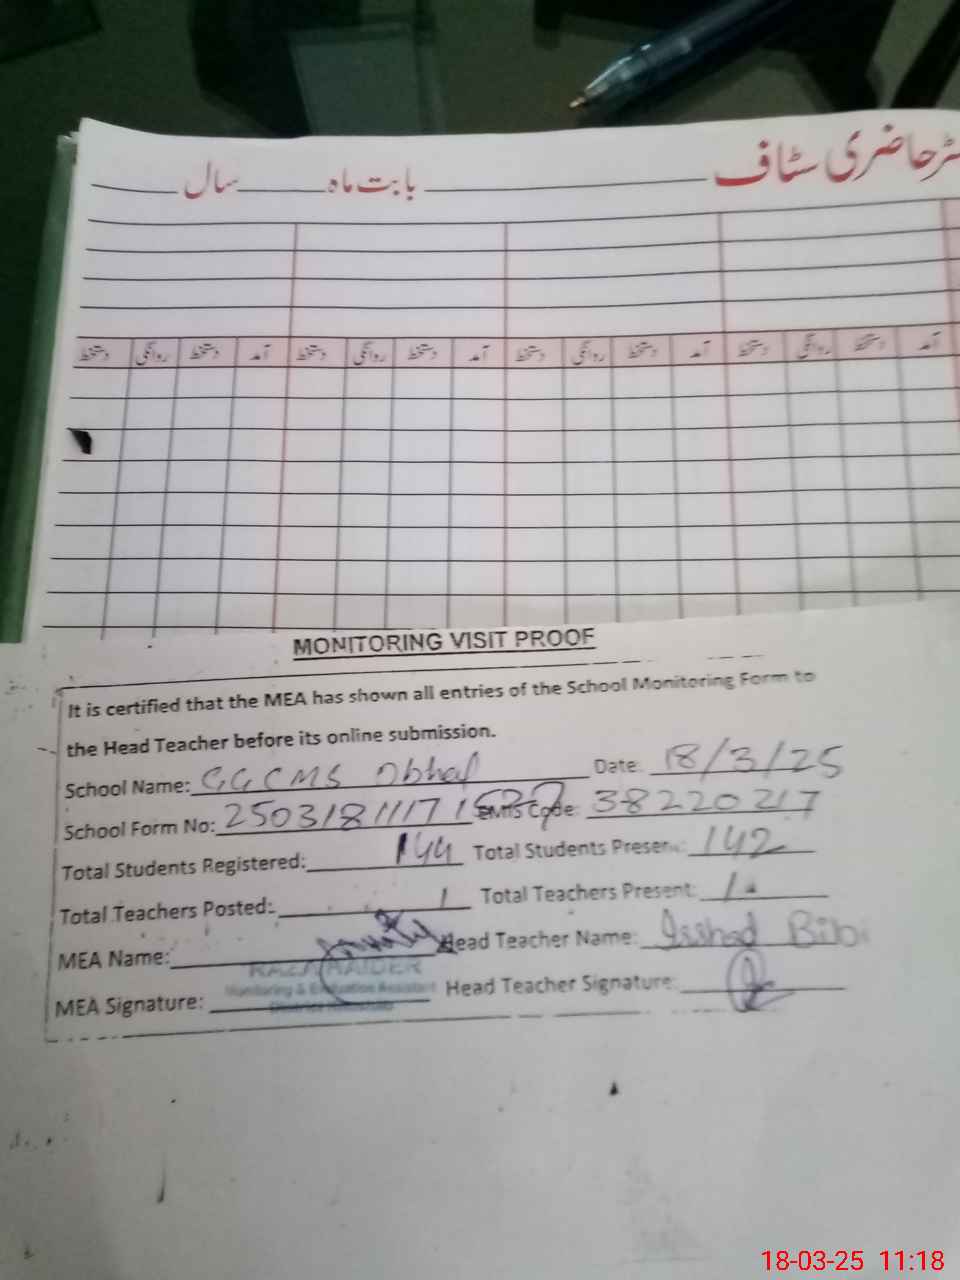 رجسٹر حاضری سٹاف بابت ماہ سال
آمد دستخط روانگی دستخط آمد دستخط روانگی دستخط آمد دستخط روانگی دستخط آمد دستخط روانگی دستخط
MONITORING VISIT PROOF
It is certified that the MEA has shown all entries of the School Monitoring Form to
the Head Teacher before its online submission.
School Name: GGCMS Obhal Date: 18/3/25
School Form No: EMIS Code: 38220217
Total Students Registered: 144 Total Students Present: 142
Total Teachers Posted: 1 Total Teachers Present: 1
MEA Name: Head Teacher Name: Isshad Bibi
HAIDER
Monitoring & Evaluation Assistant
MEA Signature: Head Teacher Signature:
18-03-25 11:18